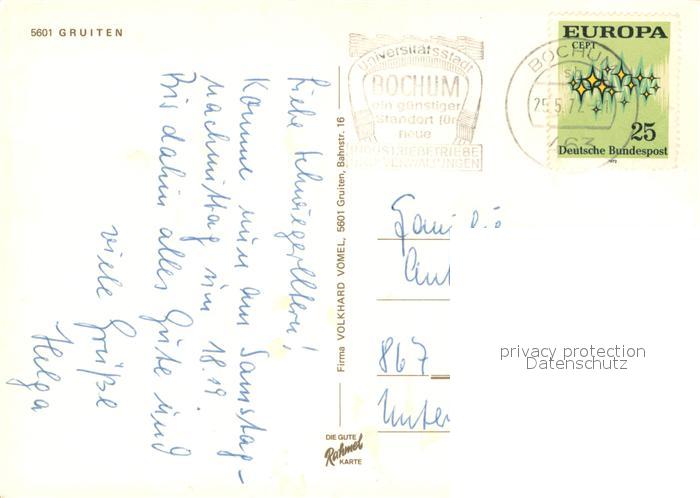 5601 GRUITEN
Liebe Schwiegereltern!
Komme nun am Samstag-
nachmittag um 18.19.
Bis dahin alles Gute und
viele Grüße
Helga
Firma VOLKHARD VÖMEL, 5601 Gruiten, Bahnstr. 16
DIE GUTE
Rahmel
KARTE
Universitätsstadt
BOCHUM
ein günstiger
Standort für
neue
INDUSTRIEBETRIEBE
UND VERWALTUNGEN
BOCHUM
25.5.72
463
EUROPA
CEPT
25
Deutsche Bundespost
1972
867
Unter
privacy protection
Datenschutz